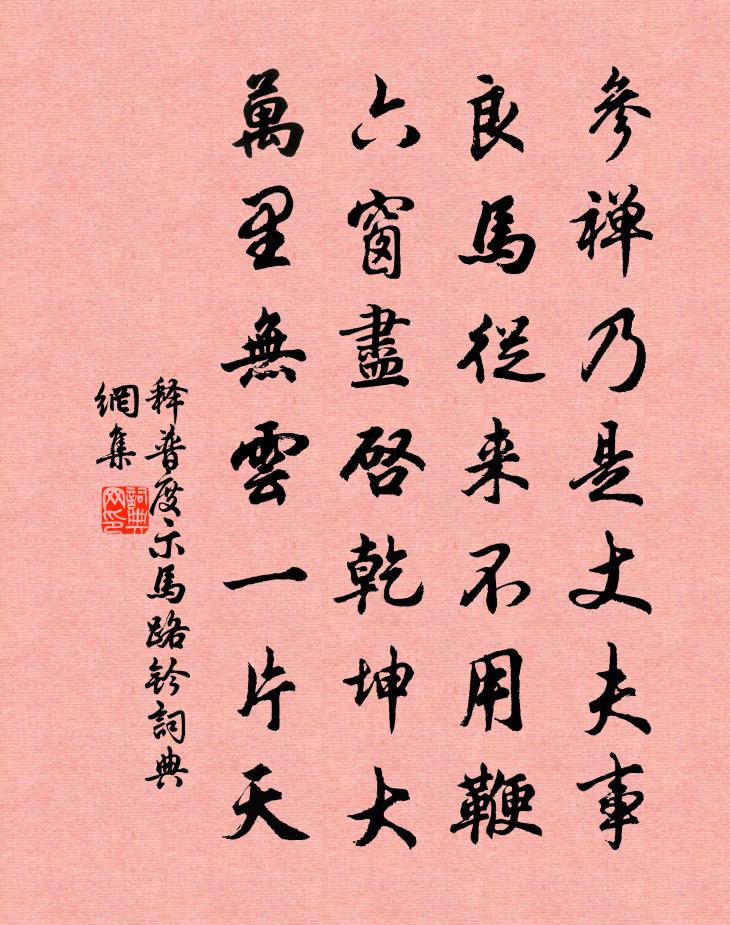 參禅乃是丈夫事
良馬從来不用鞭
六窗盡啓乾坤大
萬里無雲一片天
释普度示馬路鈐詞典
網集
詞典
网印